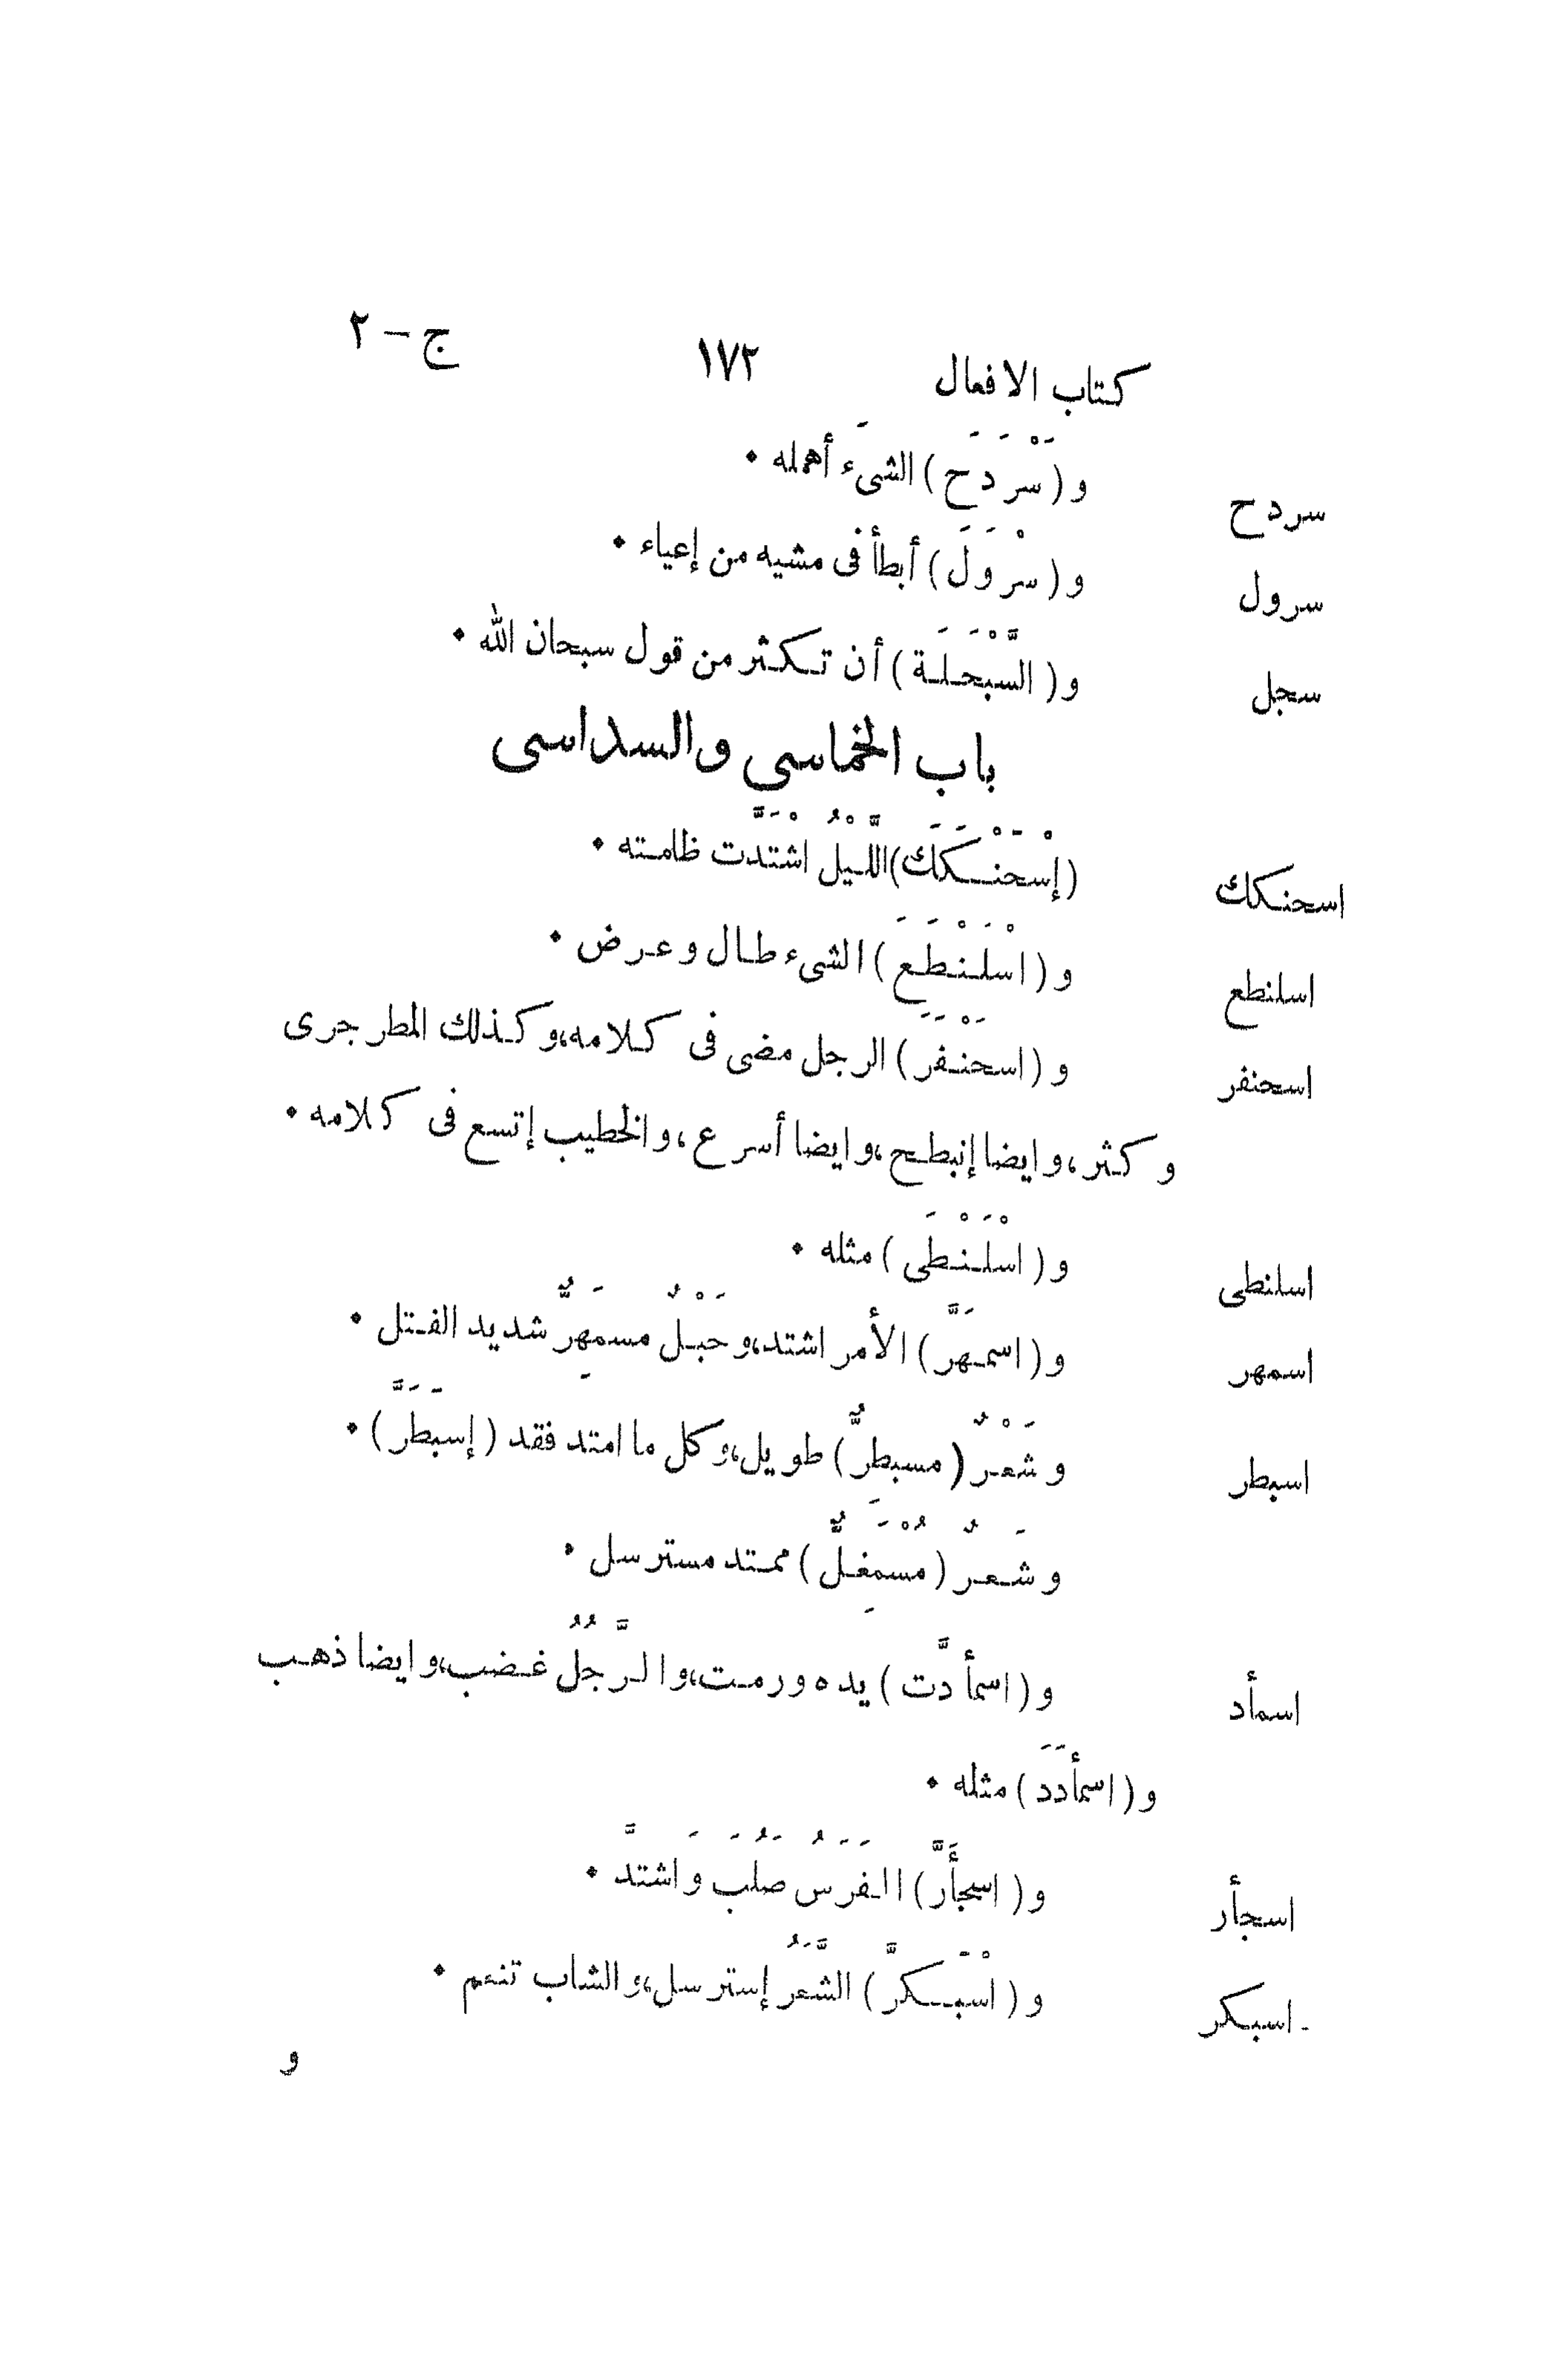 كتاب الافعال ١٧٢ ج – ٢
سردح و (سَرْدَحَ) الشىءَ أهمله •
سرول و (سرْوَلَ) أبطأ فى مشيه من إعياء •
سجل و (السَّبْحَلَة) أن تكثر من قول سبحان الله •
باب الخماسي والسداسي
اسحنكك (إسْحَنْكَكَ) اللَّيْلُ اشْتَدَّت ظلمته •
اسلنطع و (اسْلَنْطَعَ) الشىء طال وعرض •
اسحنفر و (اسحَنْفَرَ) الرجل مضى فى كلامه، وكذلك المطر جرى
وكثر، وايضا إنبطح، وايضا أسرع، والخطيب إتسع فى كلامه •
اسلنطى و (اسْلَنْطَى) مثله •
اسمهر و (اسمهَرَّ) الأمر اشتد، وحَبْلٌ مسمَهِرٌّ شديد الفتل •
اسبطر وشَعْرٌ (مسبطِرٌّ) طويل، وكل ما امتد فقد (إسبَطَرَّ) •
وشَعرٌ (مُسْمَغِلٌّ) ممتد مسترسل •
اسمأد و (اسمأدَّت) يده ورمت، والرَّجُلُ غضب، وايضا ذهب
و (اسمأدَدَ) مثله •
اسجأر و (اسجأَرَّ) الفَرَسُ صَلُبَ وَاشتدَّ •
اسبكر و (اسْبَكرَّ) الشَّعَرُ إسترسل، والشاب تنعم •
و